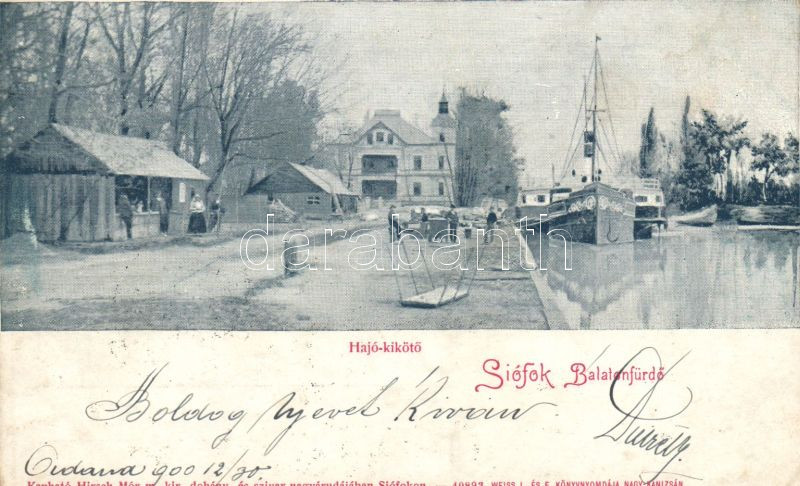 darabanth
Hajó-kikötő
Siófok Balatonfürdő
Boldog ujevet kiván
900 12/30
Kapható Hirsch Mór m. kir. dohány- és szivar-nagyárudájában Siófokon. — 10893 WEISS L. ÉS F. KÖNYVNYOMDÁJA NAGY-KANIZSÁN